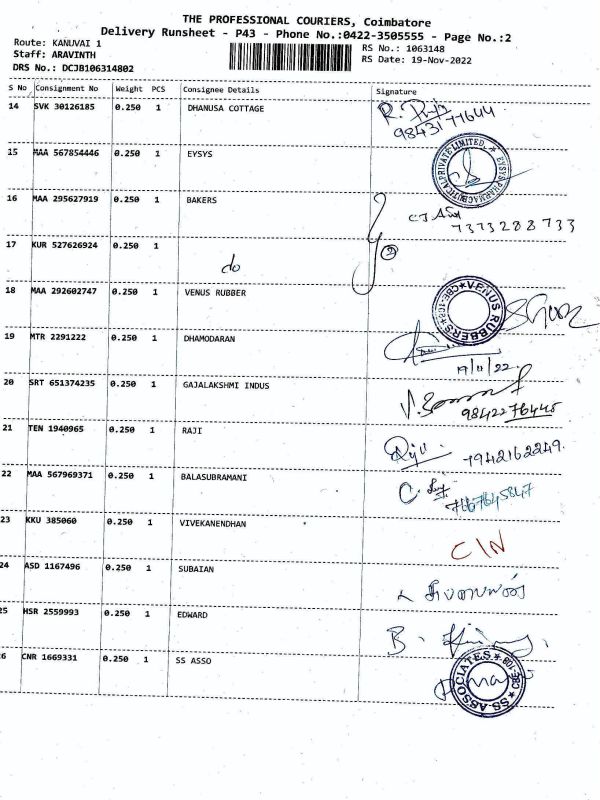 THE PROFESSIONAL COURIERS, Coimbatore
Delivery Runsheet - P43 - Phone No.:0422-3505555 - Page No.:2
Route: KANUVAI 1
RS No.: 1063148
Staff: ARAVINTH
RS Date: 19-Nov-2022
DRS No.: DCJB106314802
S No Consignment No Weight PCS Consignee Details Signature
14 SVK 30126185 0.250 1 DHANUSA COTTAGE
98431 77644
15 MAA 567854446 0.250 1 EYSYS
EYSYS PHARMACEUTICAL PRIVATE LIMITED
16 MAA 295627919 0.250 1 BAKERS
7373288733
17 KUR 527626924 0.250 1
do
2
18 MAA 292602747 0.250 1 VENUS RUBBER
VENUS RUBBERS
19 MTR 2291222 0.250 1 DHAMODARAN
19/11/22
20 SRT 651374235 0.250 1 GAJALAKSHMI INDUS
9842276445
21 TEN 1940965 0.250 1 RAJI
7942162249
22 MAA 567969371 0.250 1 BALASUBRAMANI
23 KKU 385060 0.250 1 VIVEKANENDHAN
C/N
24 ASD 1167496 0.250 1 SUBAIAN
25 HSR 2559993 0.250 1 EDWARD
B.
6 CNR 1669331 0.250 1 SS ASSO
SS ASSOCIATES CBE-108